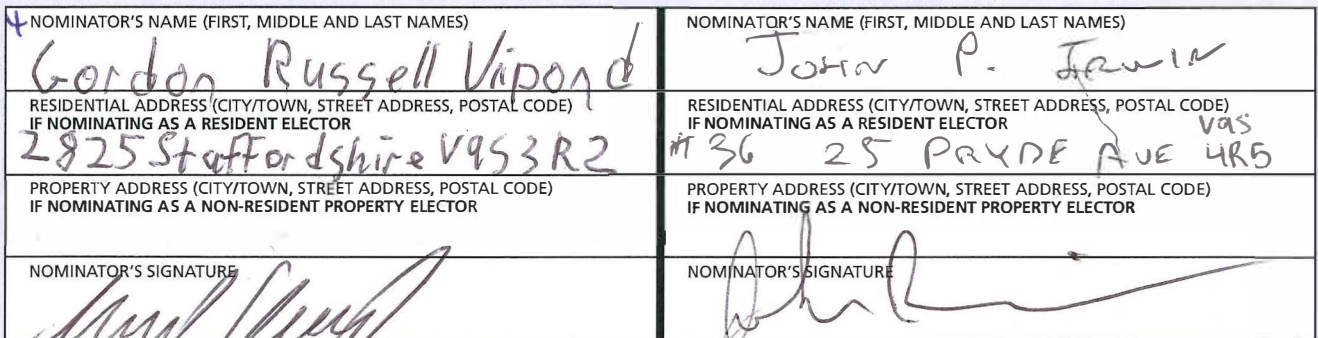 4
NOMINATOR'S NAME (FIRST, MIDDLE AND LAST NAMES)
Gordon Russell Vipond
RESIDENTIAL ADDRESS (CITY/TOWN, STREET ADDRESS, POSTAL CODE)
IF NOMINATING AS A RESIDENT ELECTOR
2825 Staffordshire V9S3R2
PROPERTY ADDRESS (CITY/TOWN, STREET ADDRESS, POSTAL CODE)
IF NOMINATING AS A NON-RESIDENT PROPERTY ELECTOR
NOMINATOR'S SIGNATURE
NOMINATOR'S NAME (FIRST, MIDDLE AND LAST NAMES)
JOHN P. IRWIN
RESIDENTIAL ADDRESS (CITY/TOWN, STREET ADDRESS, POSTAL CODE)
IF NOMINATING AS A RESIDENT ELECTOR
V9S
# 36 25 PRYDE AVE 4R5
PROPERTY ADDRESS (CITY/TOWN, STREET ADDRESS, POSTAL CODE)
IF NOMINATING AS A NON-RESIDENT PROPERTY ELECTOR
NOMINATOR'S SIGNATURE